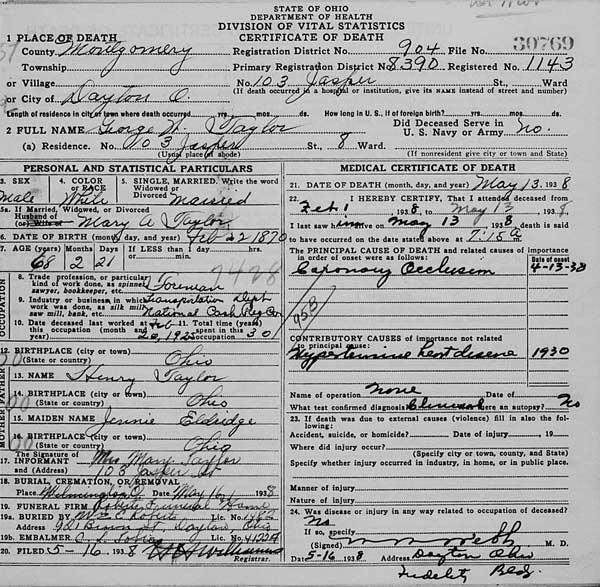 STATE OF OHIO
DEPARTMENT OF HEALTH
DIVISION OF VITAL STATISTICS
CERTIFICATE OF DEATH
1 PLACE OF DEATH
County Montgomery Registration District No. 904 File No. 30769
Township Primary Registration District No. 8390 Registered No. 1143
or Village No. 103 Jasper St., Ward
or City of Dayton O. (If death occurred in a hospital or institution, give its NAME instead of street and number)
Length of residence in city or town where death occurred yrs. mos. ds. How long in U. S., if of foreign birth? yrs. mos. ds.
2 FULL NAME George Taylor Did Deceased Serve in U. S. Navy or Army No.
(a) Residence. No. 103 Jasper St., 8 Ward.
(Usual place of abode) (If nonresident give city or town and State)
PERSONAL AND STATISTICAL PARTICULARS
3. SEX Male 4. COLOR or RACE White 5. SINGLE, MARRIED, Widowed or Divorced Write the word Married
5a. If Married, Widowed, or Divorced
Husband of
(or) Wife of Mary A Taylor
6. DATE OF BIRTH (month, day, and year) Feb 22 1870
7. AGE (years) 68 Months 2 Days 21 If LESS than 1 day hrs. or min.
OCCUPATION
8. Trade, profession, or particular kind of work done, as spinner, sawyer, bookkeeper, etc. Foreman
9. Industry or business in which work was done, as silk mill, saw mill, bank, etc. Transportation Dept National Cash Reg Co.
10. Date deceased last worked at this occupation (month and year) Total time (years) spent in this occupation 30
12. BIRTHPLACE (city or town)
(State or country) Ohio
FATHER
13. NAME Henry Taylor
14. BIRTHPLACE (city or town)
(State or country) Ohio
MOTHER
15. MAIDEN NAME Jennie Eldridge
16. BIRTHPLACE (city or town)
(State or country) Ohio
The Signature of
17. INFORMANT Mrs Mary Taylor
and (Address) 103 Jasper St
18. BURIAL, CREMATION, OR REMOVAL
Place Wilmington O. Date May 16 1938
19. FUNERAL FIRM Roberts Funeral Home
19a. BURIED BY Lic. No.
Address Brown St. Dayton Ohio
19b. EMBALMER Lic. No. 4122A
20. FILED 5-16 1938 Williams
Registrar.
MEDICAL CERTIFICATE OF DEATH
21. DATE OF DEATH (month, day, and year) May 13. 1938
22. I HEREBY CERTIFY, That I attended deceased from
Feb 1, 1938, to May 13, 1938.
I last saw him alive on May 13, 1938, death is said
to have occurred on the date stated above at 7:15 a
The PRINCIPAL CAUSE OF DEATH and related causes of importance
in order of onset were as follows: Date of onset
Coronary Occlusion 4-13-38
CONTRIBUTORY CAUSES of importance not related
to principal cause:
Hypertensive heart disease 1930
Name of operation None Date of
What test confirmed diagnosis Clinical Was there an autopsy? No
23. If death was due to external causes (violence) fill in also the following:
Accident, suicide, or homicide? Date of injury , 19
Where did injury occur?
(Specify city or town, county, and State)
Specify whether injury occurred in industry, in home, or in public place.
Manner of injury
Nature of injury
24. Was disease or injury in any way related to occupation of deceased?
No
If so, specify
(Signed) Webb M. D.
Date 5-16 1938 Address Dayton Ohio
Fidelity Bldg.